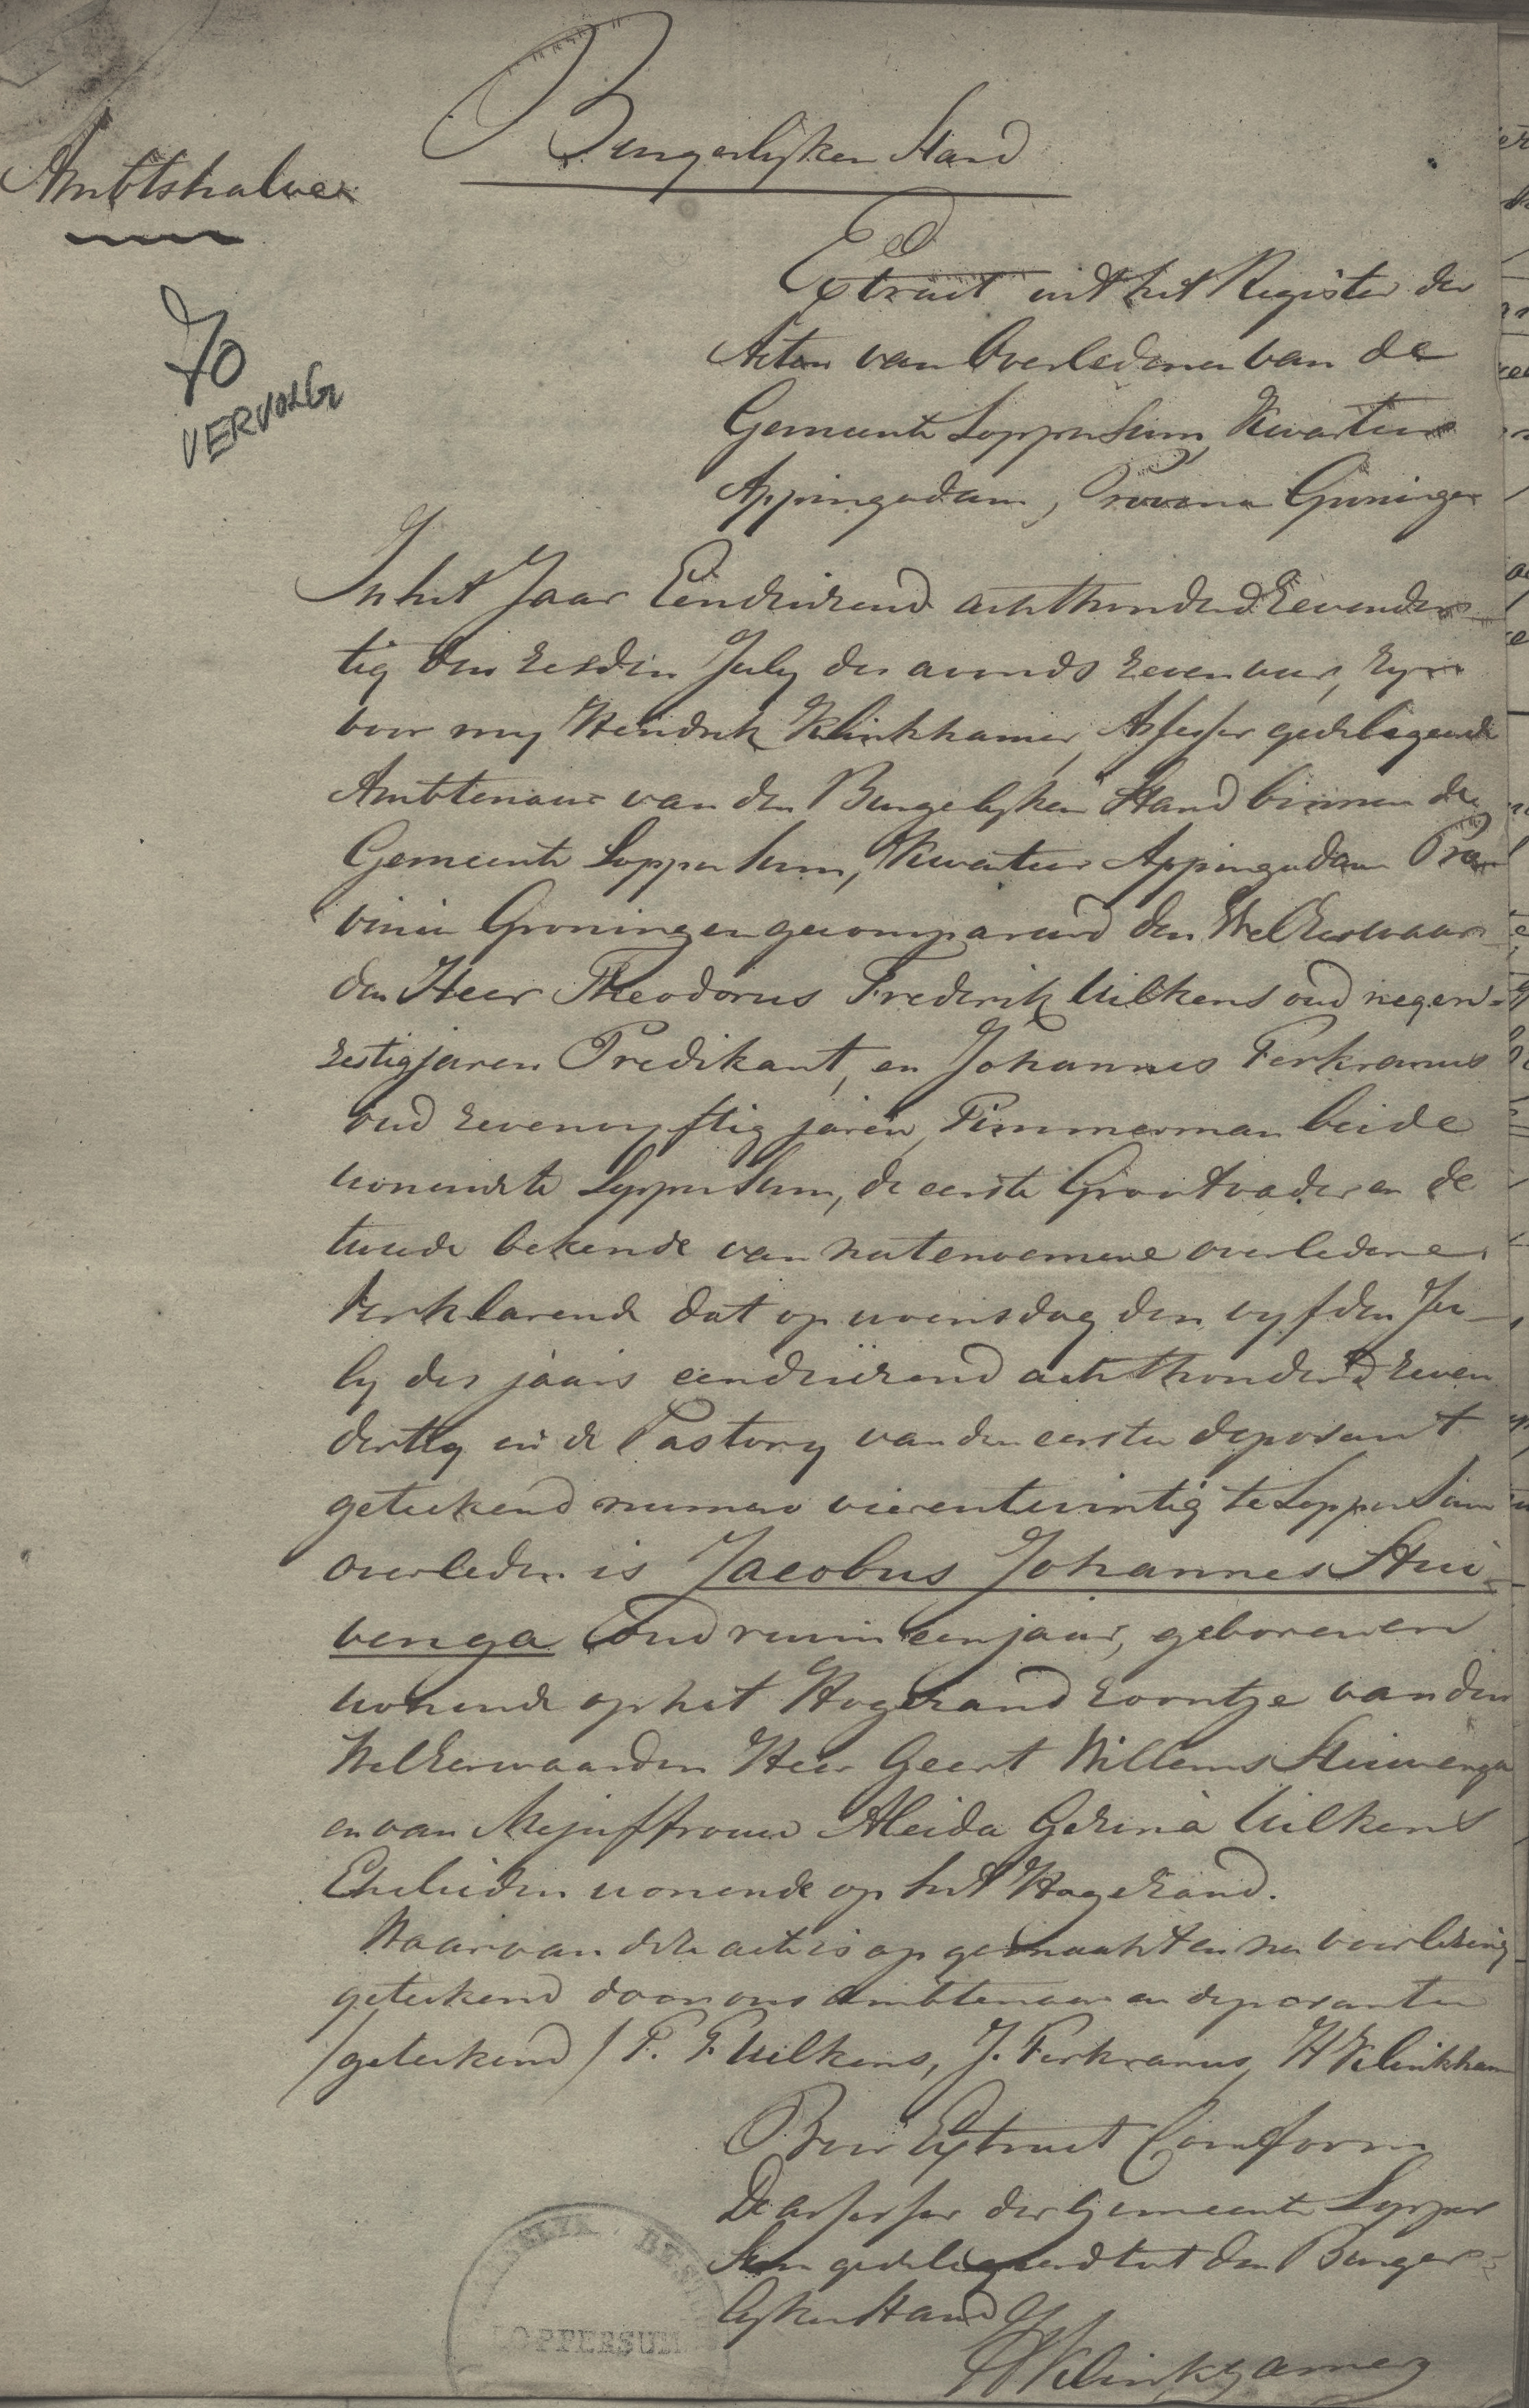 Burgerlijken Stand
Ambtshalve
70
VERVOLG
Extract uit het Register der
Acten van Overledenen van de
Gemeente Loppersum, Kwartier
Appingadam, Provincie Groningen
In het Jaar Eenduizend achthonderd Zevender-
tig den zesden July des avonds zeven uur, zyn
voor my Hendrik Klinkhamer, Assessor gedelegeerde
Ambtenaar van den Burgelyken Stand binnen de
Gemeente Loppersum, Kwartier Appingadam Pro-
vincie Groningen gecompareerd den WelEerwaar-
den Heer Theodorus Frederik Uilkens oud negen-
zestig jaren Predikant, en Johannes Ferkranus
oud zevenvyftig jaren, Timmerman beide
wonende te Loppersum, de eerste Grootvader en de
tweede bekende van natenoemene overledene
Verklarende dat op woensdag den vyfden Ju-
ly des jaars eenduizend achthonderd zeven
dertig in de Pastory van den eersten deposant
getekend numero vierentwintig te Loppersum
overleden is Jacobus Johannes Stui-
venga oud ruim een jaar, geboren en
wonende op het Hogezand zoontje van den
WelEerwaarden Heer Geert Willems Stuivenga
en van Mejuffrouw Aleida Gezina Uilkens
Ehelieden wonende op het Hogezand.
Waarvan deze acte is opgemaakt en na voorlezing
getekend door ons ambtenaar en deposanten
/getekend/ T. F. Uilkens, J. Ferkranus, H Klinkham
Voor Extract Conform
De assessor der Gemeente Lopper
sum gedelegeerd tot den Burger-
lyken Stand
HKlinkhamer
BEST
LOPPERSUM